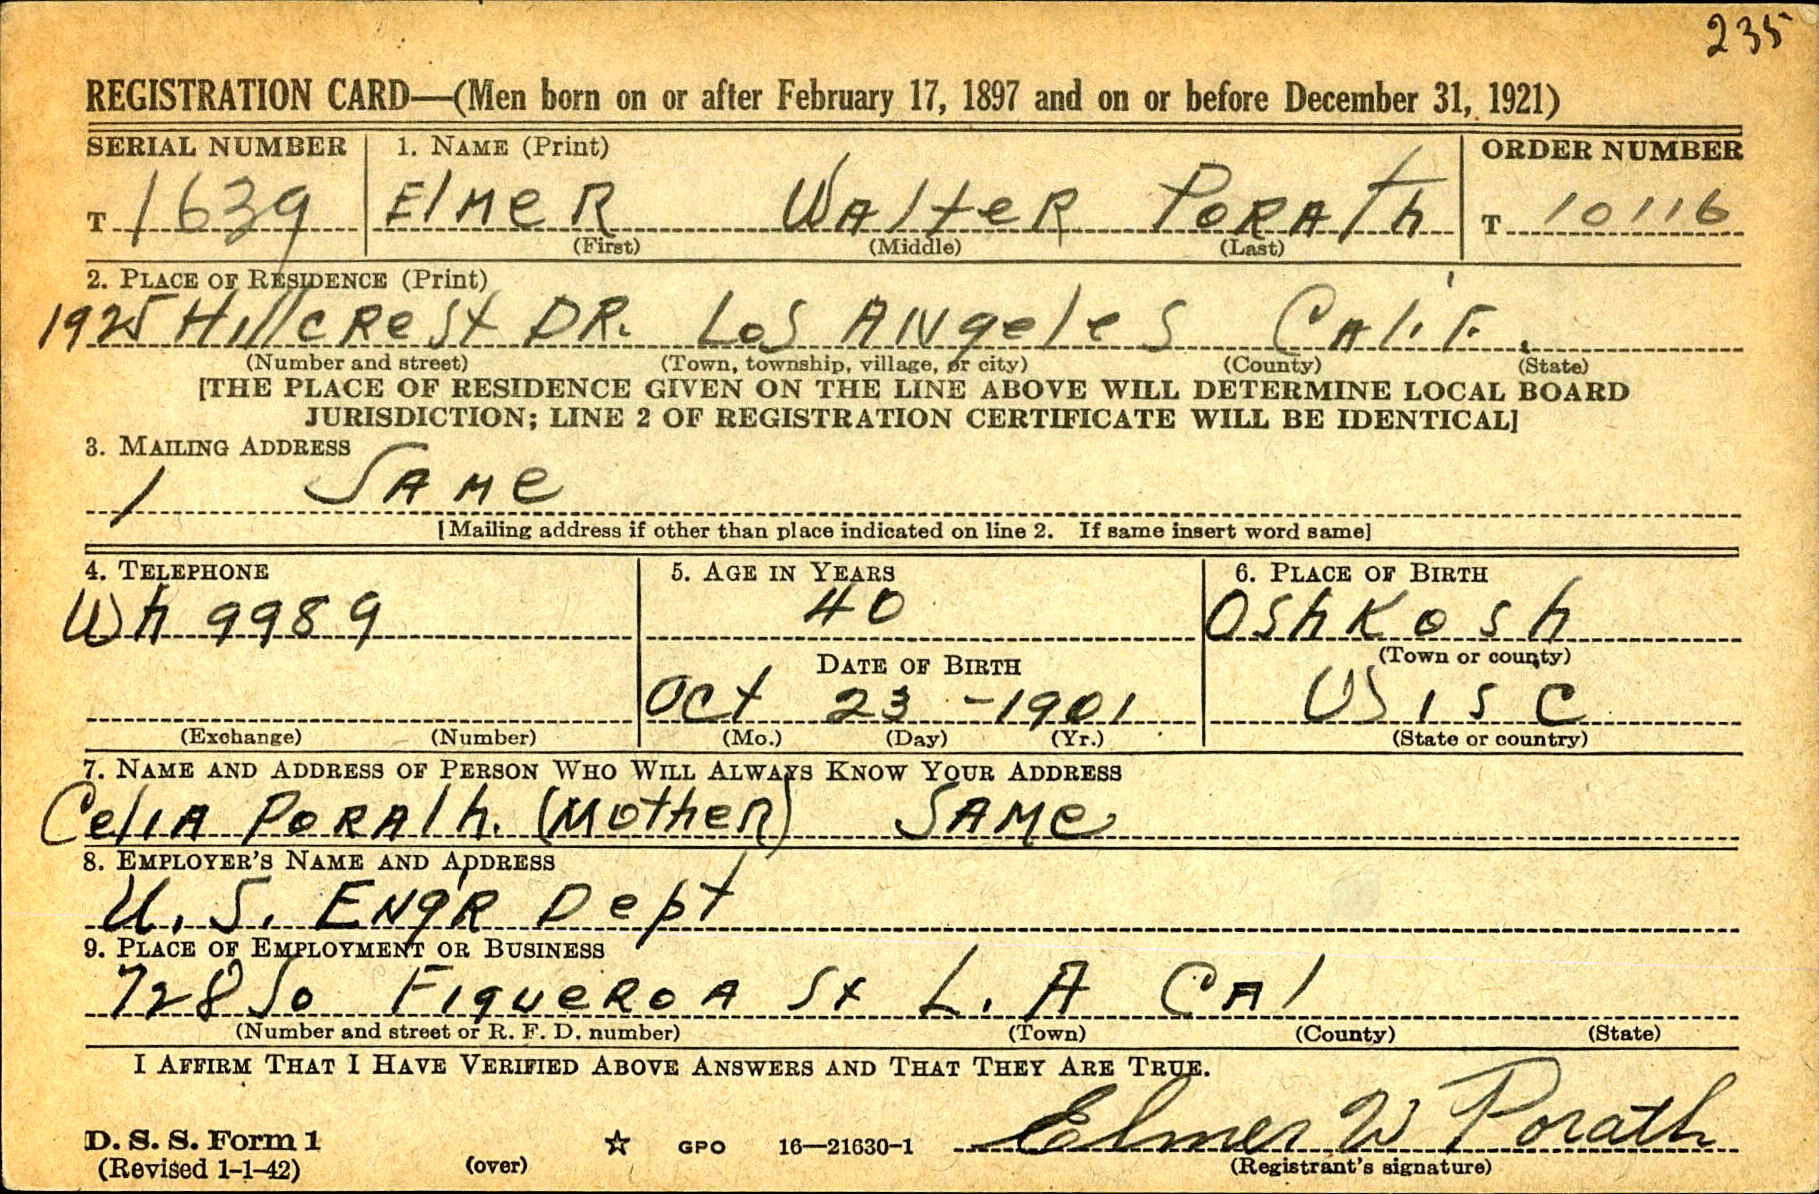 235
REGISTRATION CARD—(Men born on or after February 17, 1897 and on or before December 31, 1921)
SERIAL NUMBER 1. NAME (Print) ORDER NUMBER
T 1639 ElmeR WAlteR PoRATh T 10116
(First) (Middle) (Last)
2. PLACE OF RESIDENCE (Print)
1925 HillcResT DR. Los ANgeles CAliF.
(Number and street) (Town, township, village, or city) (County) (State)
[THE PLACE OF RESIDENCE GIVEN ON THE LINE ABOVE WILL DETERMINE LOCAL BOARD
JURISDICTION; LINE 2 OF REGISTRATION CERTIFICATE WILL BE IDENTICAL]
3. MAILING ADDRESS
/ SAMe
[Mailing address if other than place indicated on line 2. If same insert word same]
4. TELEPHONE 5. AGE IN YEARS 6. PLACE OF BIRTH
Wh 9989 40 OshKosh
DATE OF BIRTH (Town or county)
Oct 23 - 1901 WisC
(Exchange) (Number) (Mo.) (Day) (Yr.) (State or country)
7. NAME AND ADDRESS OF PERSON WHO WILL ALWAYS KNOW YOUR ADDRESS
CeliA PoRATh. (Mother) SAMe
8. EMPLOYER'S NAME AND ADDRESS
U. S. ENgR Dept
9. PLACE OF EMPLOYMENT OR BUSINESS
728 So FigueRoA St L. A CAl
(Number and street or R. F. D. number) (Town) (County) (State)
I AFFIRM THAT I HAVE VERIFIED ABOVE ANSWERS AND THAT THEY ARE TRUE.
Elmer W Porath
D. S. S. Form 1 GPO 16—21630-1
(Revised 1-1-42) (over) (Registrant's signature)